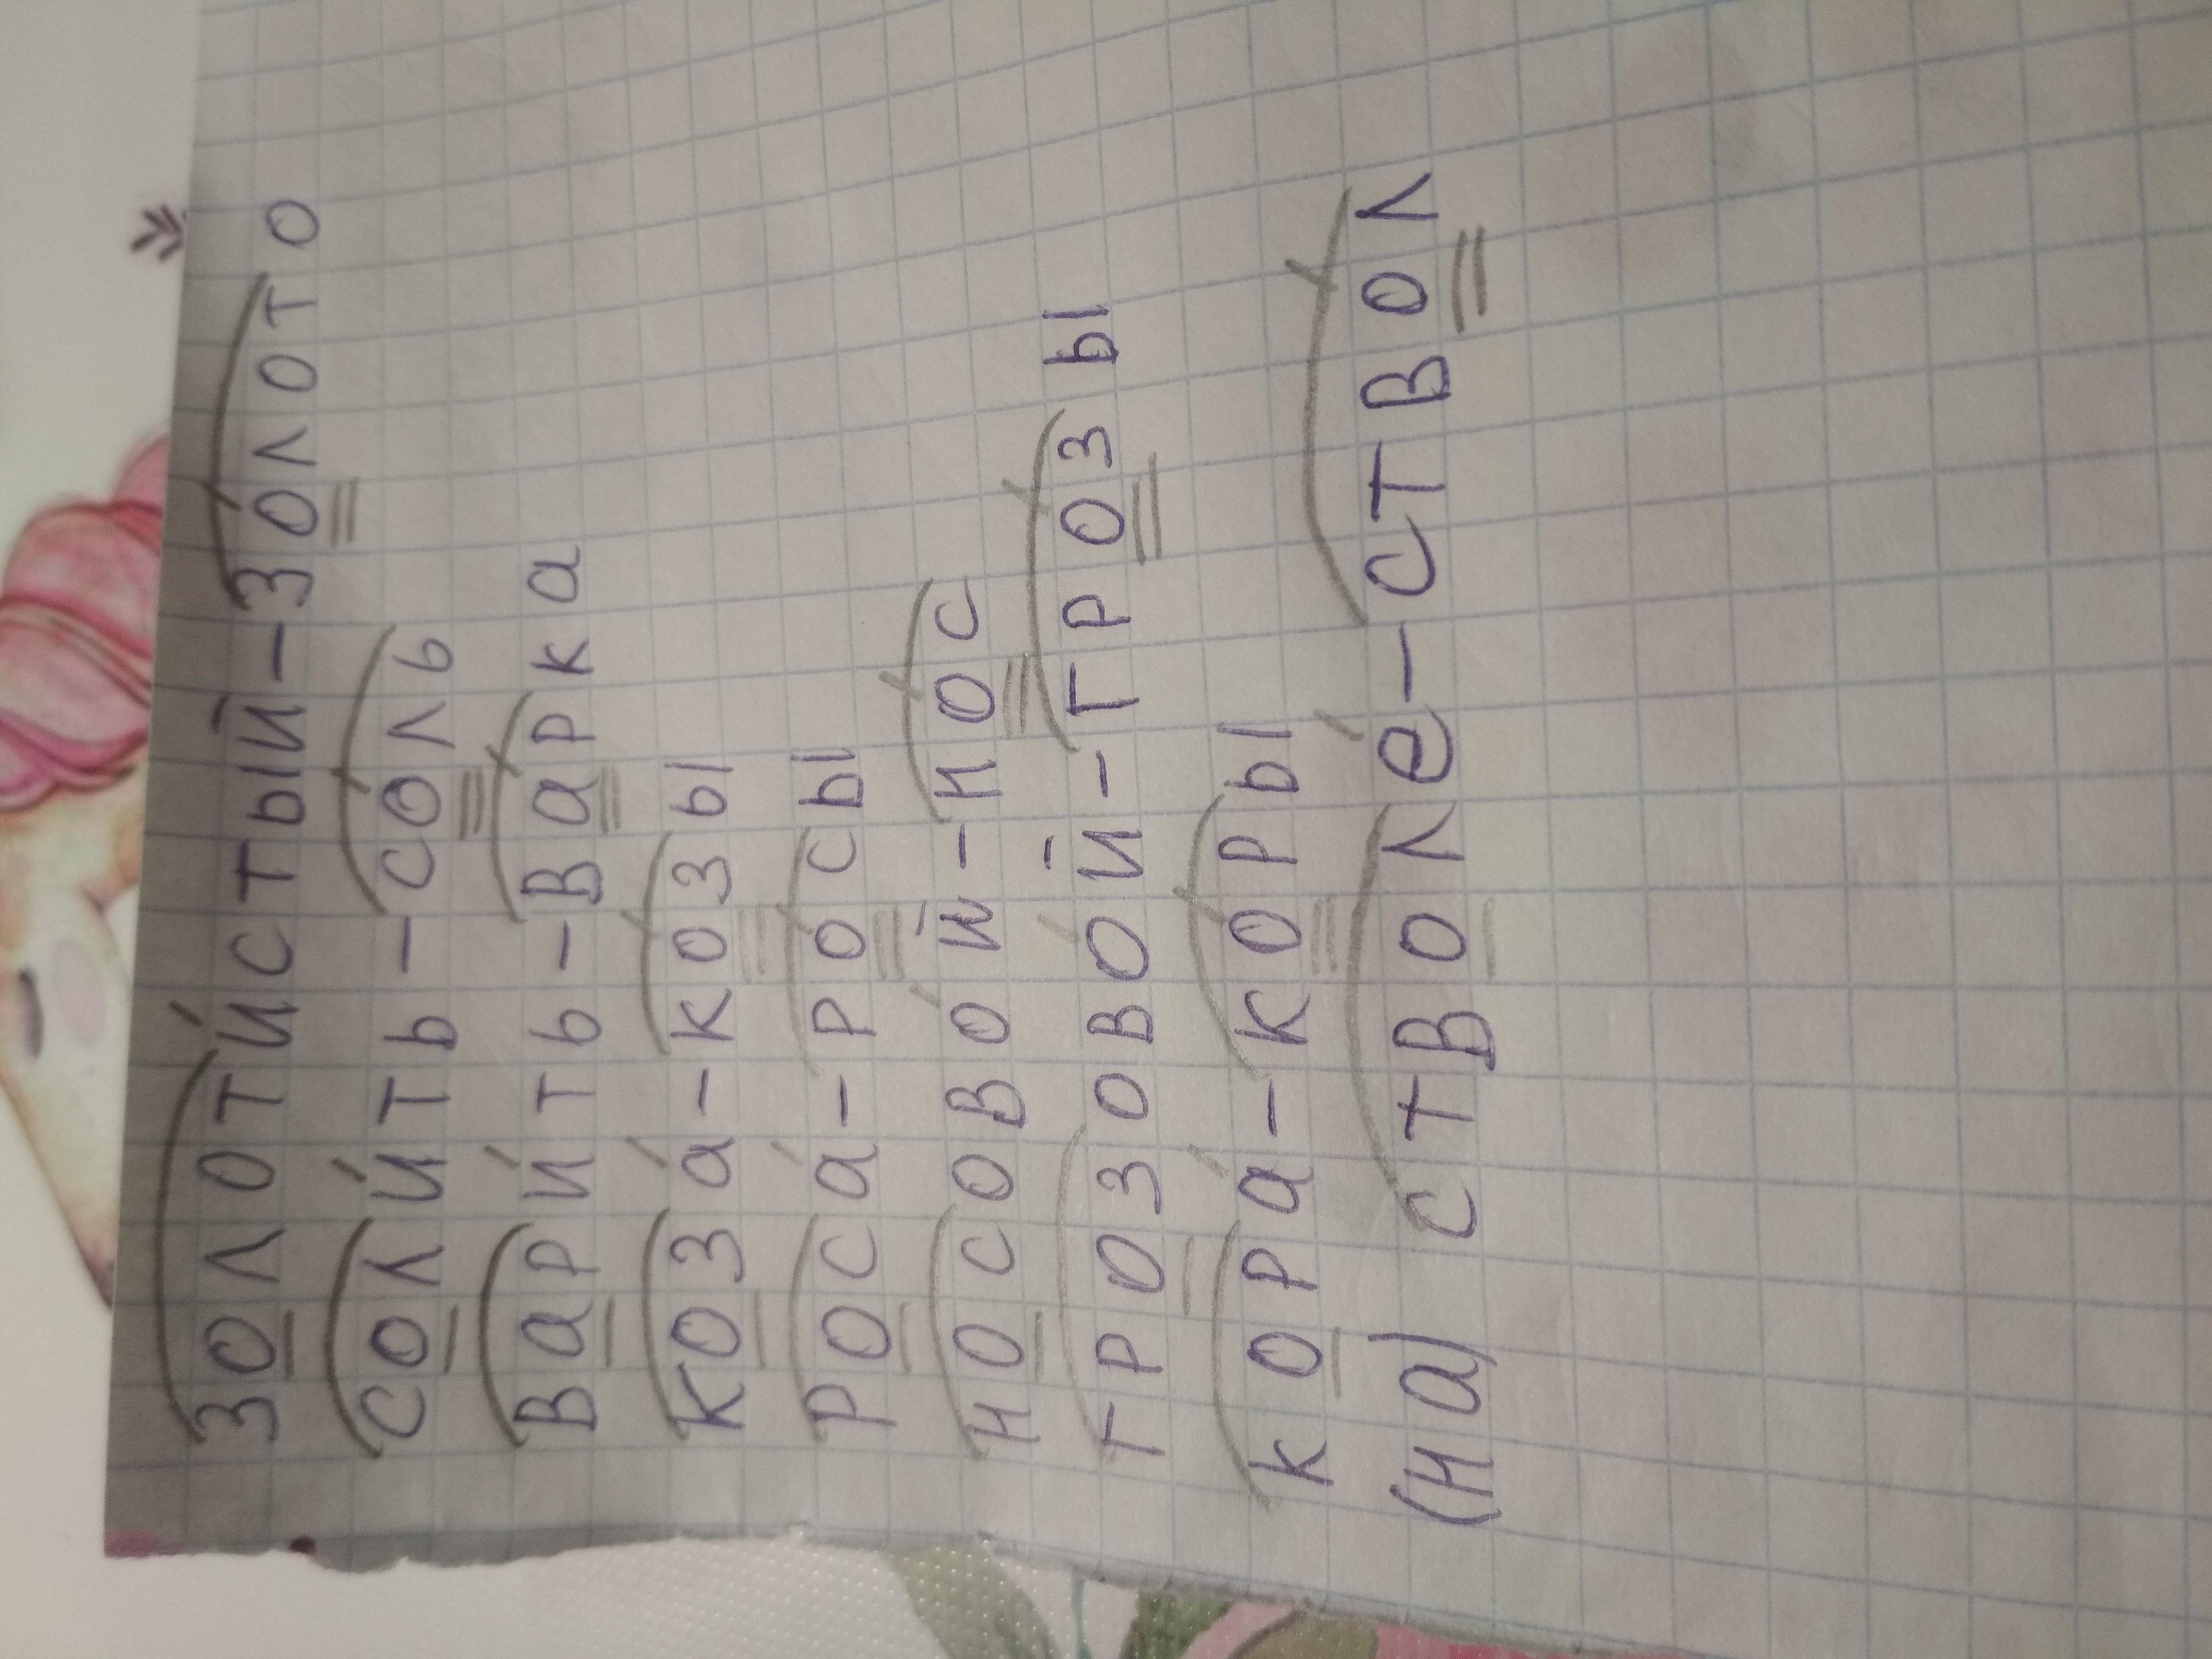 золоти́стый-зо́лото
соли́ть-со́ль
вари́ть-ва́рка
коза́-ко́зы
роса́-ро́сы
носово́й-но́с
грозово́й-гро́зы
кора́-ко́ры
(на) стволе́-ство́л